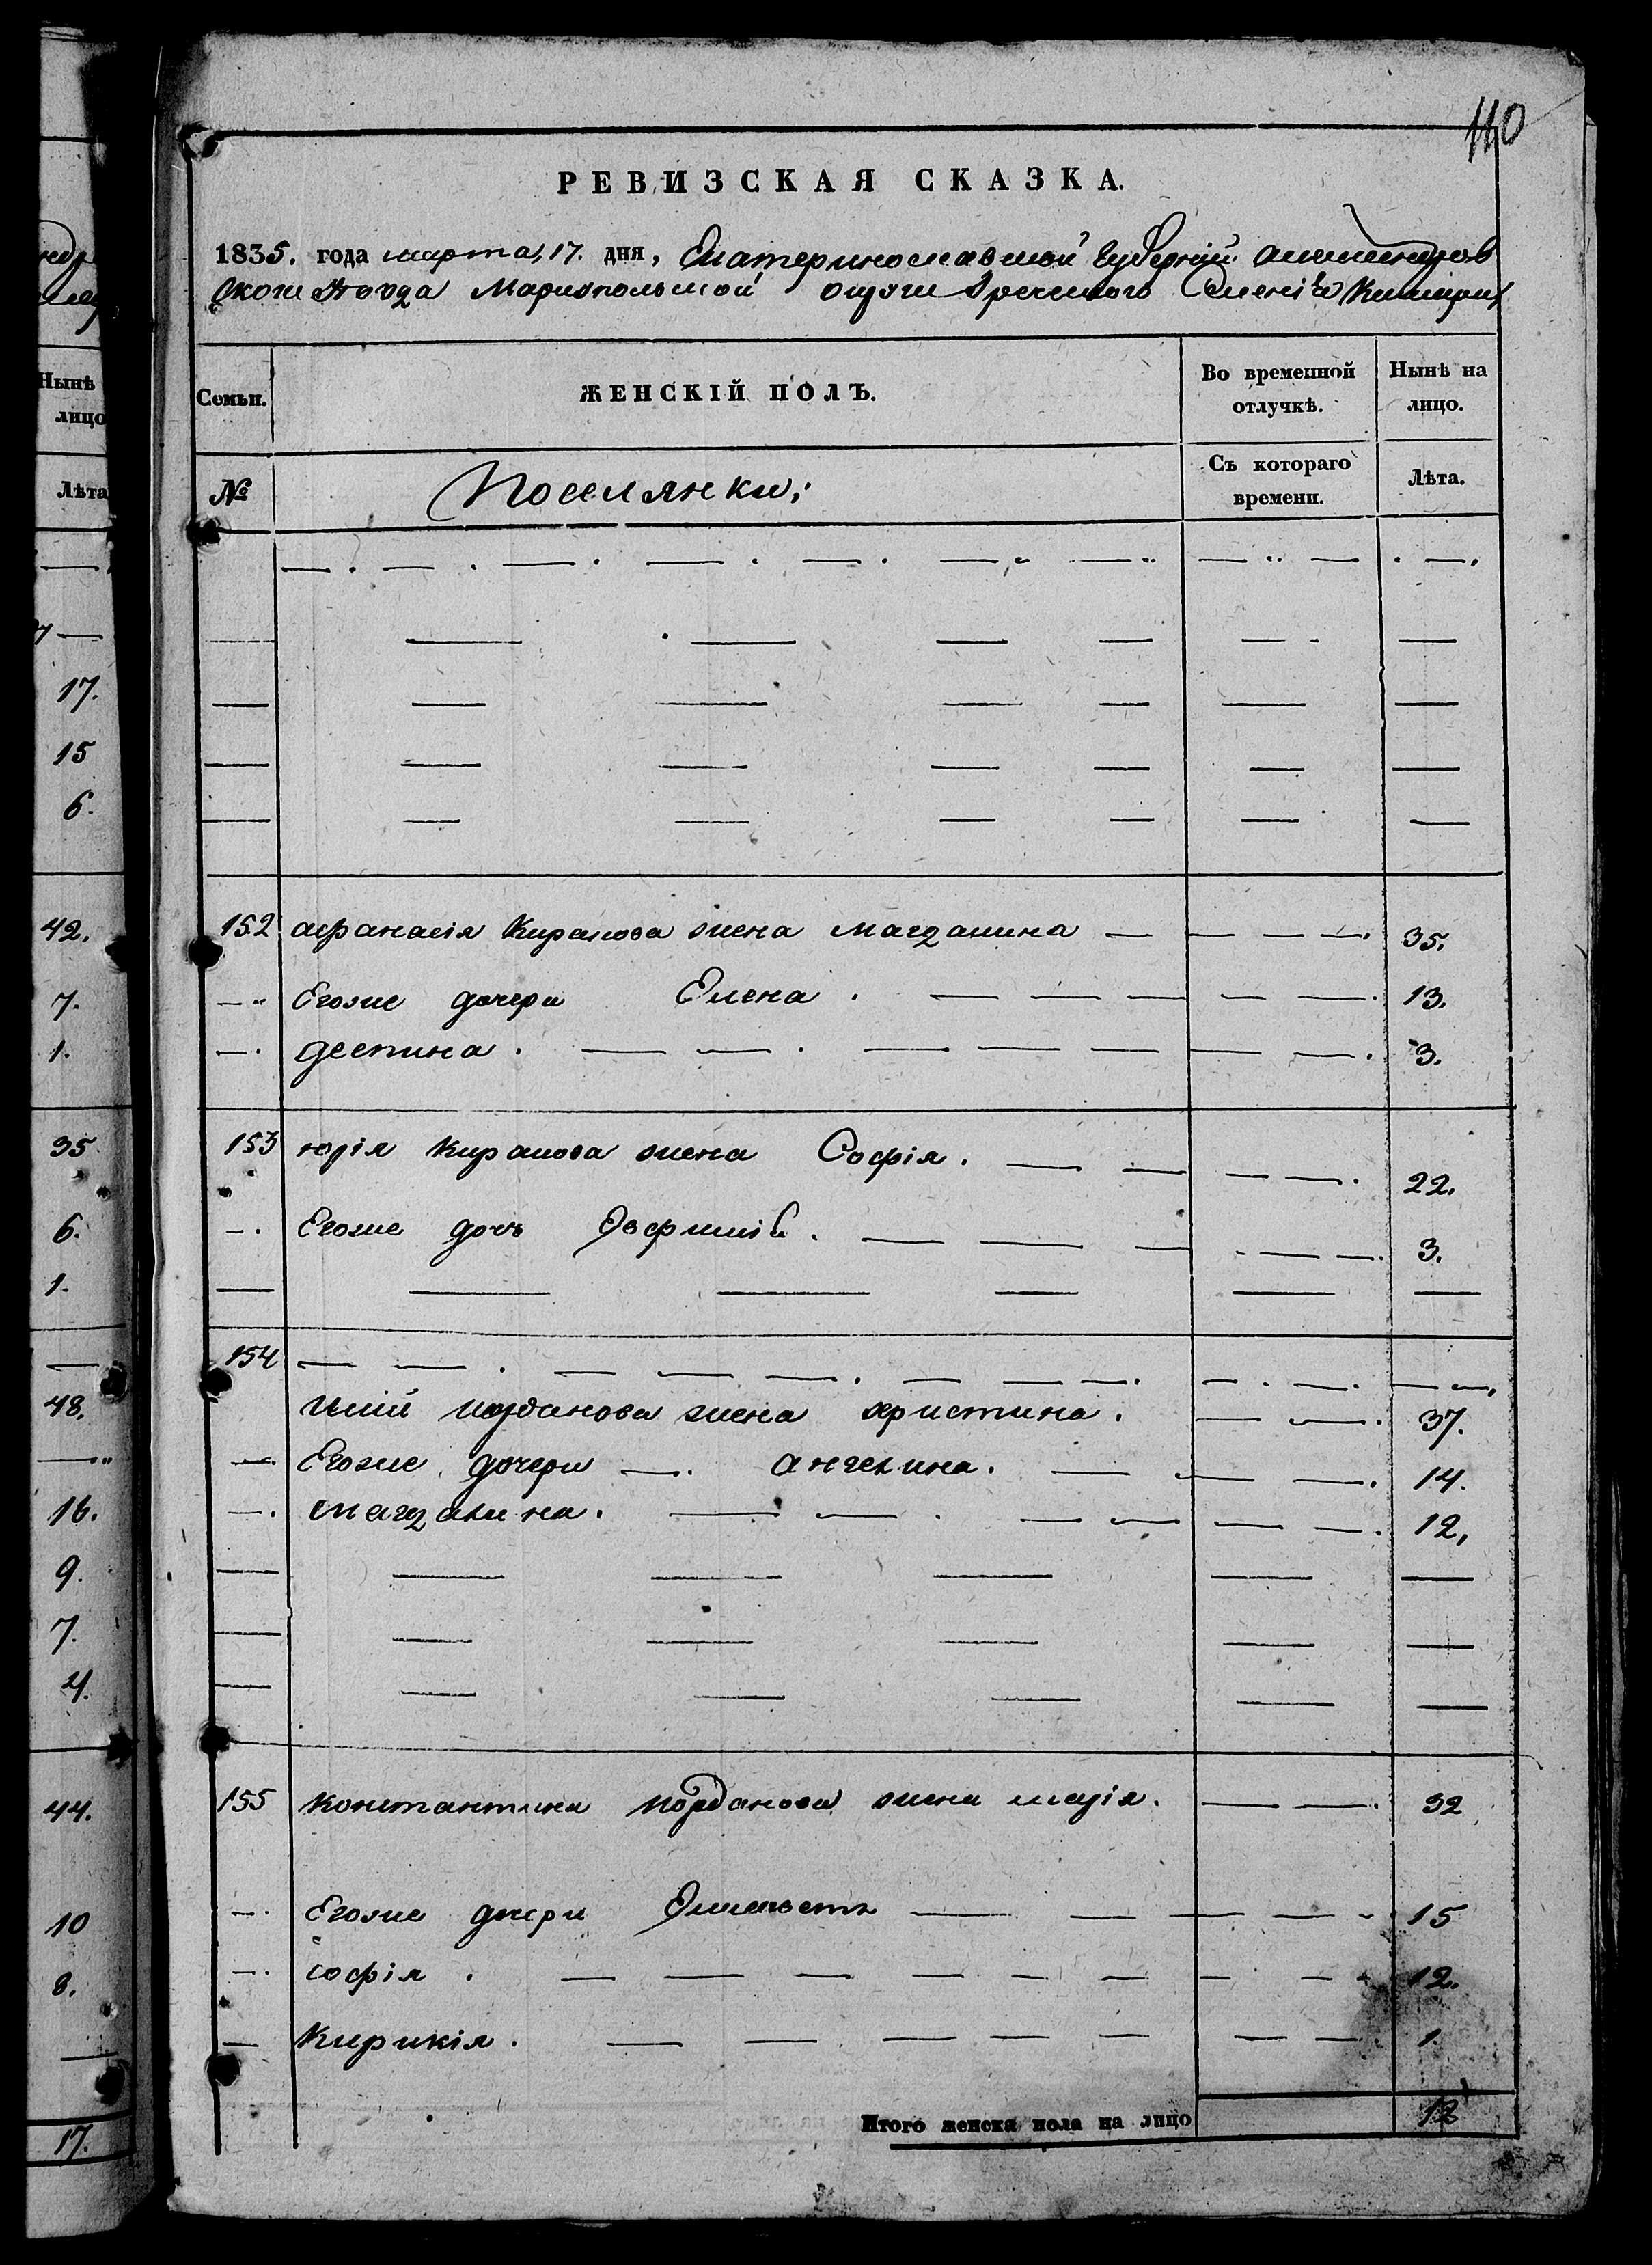 110
РЕВИЗСКАЯ СКАЗКА.
1835. года марта 17. дня, Екатеринославской Губерніи Александров
скаго уѣзда Мариопольской округи Греческого Селенія
Семьи.
ЖЕНСКІЙ ПОЛЪ.
Во временной отлучкѣ.
Нынѣ на лицо.
№
Поселянки:
Съ котораго времени.
Лѣта.
152 афанасія Киракова жена магдалина — — — —. 35.
—„ Егоже дочери Елена . — — — — —. 13.
—. деспина . — — . — — — — —. 3.
153 юрія Киракова жена Софія . — — — —. 22.
—. Егоже дочь . — — — — —. 3.
154 — — . — — — —. — — —. — . —. — —.
Ильи Иорданова жена христина . — —. 37.
—. Егоже дочери —. ангелина . — — —. 14.
—. магдалина . — — . — — — —. 12,
155 Константина Иорданова жена марія . — —. 32
—. Егоже дочери Елисаветъ — — — — - 15
—. софія . — — — — — — — — - 12.
— Кирикія . — — — — — — —. 1.
Итого женска пола на лицо 12
Нынѣ
лицо
Лѣта
17.
15
6.
42.
7.
1.
35
6.
1.
48.
16.
9.
7.
4.
44.
10
8.
17.